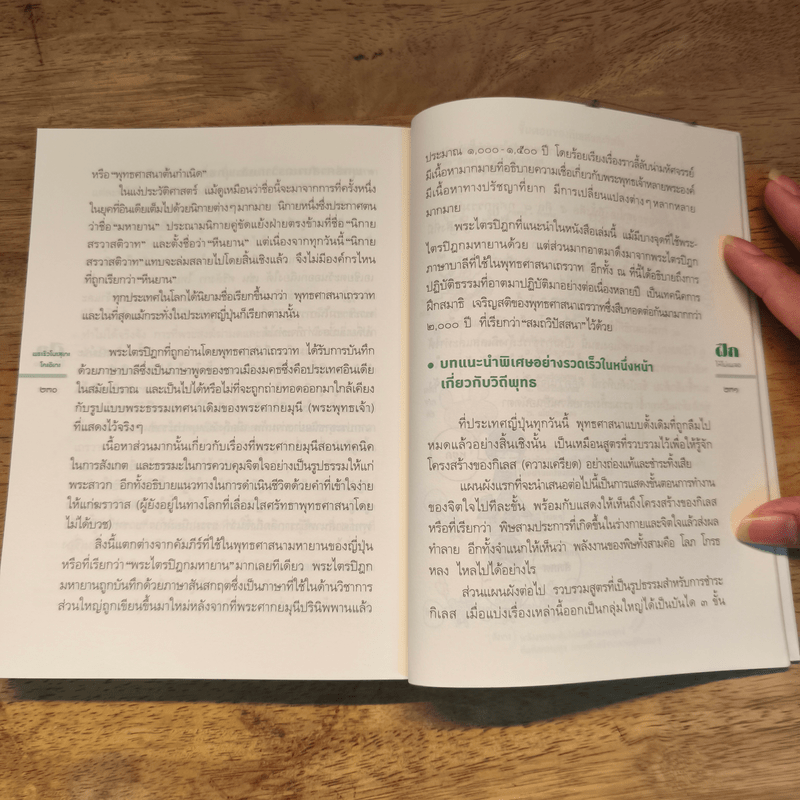 หรือ"พุทธศาสนาต้นกำเนิด"
ในแง่ประวัติศาสตร์ แม้ดูเหมือนว่าชื่อนี้จะมาจากการที่ครั้งหนึ่ง
ในยุคที่อินเดียเต็มไปด้วยนิกายต่างๆ มากมาย นิกายหนึ่งซึ่งประกาศตน
ว่าชื่อ"มหายาน" ประณามนิกายคู่ขัดแย้งฝ่ายตรงข้ามที่ชื่อ"นิกาย
สรวาสติวาท" และตั้งชื่อว่า"หีนยาน" แต่เนื่องจากทุกวันนี้"นิกาย
สรวาสติวาท"แทบจะล่มสลายไปโดยสิ้นเชิงแล้ว จึงไม่มีองค์กรไหน
ที่ถูกเรียกว่า"หีนยาน"
ทุกประเทศในโลกได้นิยามชื่อเรียกขึ้นมาว่า พุทธศาสนาเถรวาท
และในที่สุดแม้กระทั่งในประเทศญี่ปุ่นก็เรียกตามนั้น
พระไตรปิฎกที่ถูกอ่านโดยพุทธศาสนาเถรวาท ได้รับการบันทึก
ด้วยภาษาบาลีซึ่งเป็นภาษาพูดของชาวเมืองมคธซึ่งคือประเทศอินเดีย
ในสมัยโบราณ และเป็นไปได้หรือไม่ที่จะถูกถ่ายทอดออกมาใกล้เคียง
กับรูปแบบพระธรรมเทศนาเดิมของพระศากยมุนี (พระพุทธเจ้า)
ที่แสดงไว้จริงๆ
เนื้อหาส่วนมากนั้นเกี่ยวกับเรื่องที่พระศากยมุนีสอนเทคนิค
ในการสังเกต และธรรมะในการควบคุมจิตใจอย่างเป็นรูปธรรมให้แก่
พระสาวก อีกทั้งอธิบายแนวทางในการดำเนินชีวิตด้วยคำที่เข้าใจง่าย
ให้แก่ฆราวาส (ผู้ยังอยู่ในทางโลกที่เลื่อมใสศรัทธาพุทธศาสนาโดย
ไม่ได้บวช)
สิ่งนี้แตกต่างจากคัมภีร์ที่ใช้ในพุทธศาสนามหายานของญี่ปุ่น
หรือที่เรียกว่า"พระไตรปิฎกมหายาน"มากเลยทีเดียว พระไตรปิฎก
มหายานถูกบันทึกด้วยภาษาสันสกฤตซึ่งเป็นภาษาที่ใช้ในด้านวิชาการ
ส่วนใหญ่ถูกเขียนขึ้นมาใหม่หลังจากที่พระศากยมุนีปรินิพพานแล้ว
๒๓๐
ประมาณ ๑,๐๐๐-๑,๕๐๐ ปี โดยร้อยเรียงเรื่องราวลี้ลับน่ามหัศจรรย์
มีเนื้อหามากมายที่อธิบายความเชื่อเกี่ยวกับพระพุทธเจ้าหลายพระองค์
มีเนื้อหาทางปรัชญาที่ยาก มีการเปลี่ยนแปลงต่างๆ หลากหลาย
มากมาย
พระไตรปิฎกที่แนะนำในหนังสือเล่มนี้ แม้มีบางจุดที่ใช้พระ-
ไตรปิฎกมหายานด้วย แต่ส่วนมากอาตมาดึงมาจากพระไตรปิฎก
ภาษาบาลีที่ใช้ในพุทธศาสนาเถรวาท อีกทั้ง ณ ที่นี้ได้อธิบายถึงการ
ปฏิบัติธรรมที่อาตมาปฏิบัติมาอย่างต่อเนื่องหลายปี เป็นเทคนิคการ
ฝึกสมาธิ เจริญสติของพุทธศาสนาเถรวาทซึ่งสืบทอดต่อกันมามากกว่า
๒,๐๐๐ ปี ที่เรียกว่า"สมถวิปัสสนา"ไว้ด้วย
• บทแนะนำพิเศษอย่างรวดเร็วในหนึ่งหน้า
เกี่ยวกับวิถีพุทธ
ที่ประเทศญี่ปุ่นทุกวันนี้ พุทธศาสนาแบบดั้งเดิมที่ถูกลืมไป
หมดแล้วอย่างสิ้นเชิงนั้น เป็นเหมือนสูตรที่รวบรวมไว้เพื่อให้รู้จัก
โครงสร้างของกิเลส (ความเครียด) อย่างถ่องแท้และชำระทิ้งเสีย
แผนผังแรกที่จะนำเสนอต่อไปนี้เป็นการแสดงขั้นตอนการทำงาน
ของจิตใจไปทีละขั้น พร้อมกับแสดงให้เห็นถึงโครงสร้างของกิเลส
หรือที่เรียกว่า พิษสามประการที่เกิดขึ้นในร่างกายและจิตใจแล้วส่งผล
ทำลาย อีกทั้งจำแนกให้เห็นว่า พลังงานของพิษทั้งสามคือ โลภ โกรธ
หลง ไหลไปได้อย่างไร
ส่วนแผนผังต่อไป รวบรวมสูตรที่เป็นรูปธรรมสำหรับการชำระ
กิเลส เมื่อแบ่งเรื่องเหล่านี้ออกเป็นกลุ่มใหญ่ได้เป็นบันได ๓ ขั้น
ฝึก
๒๓๑